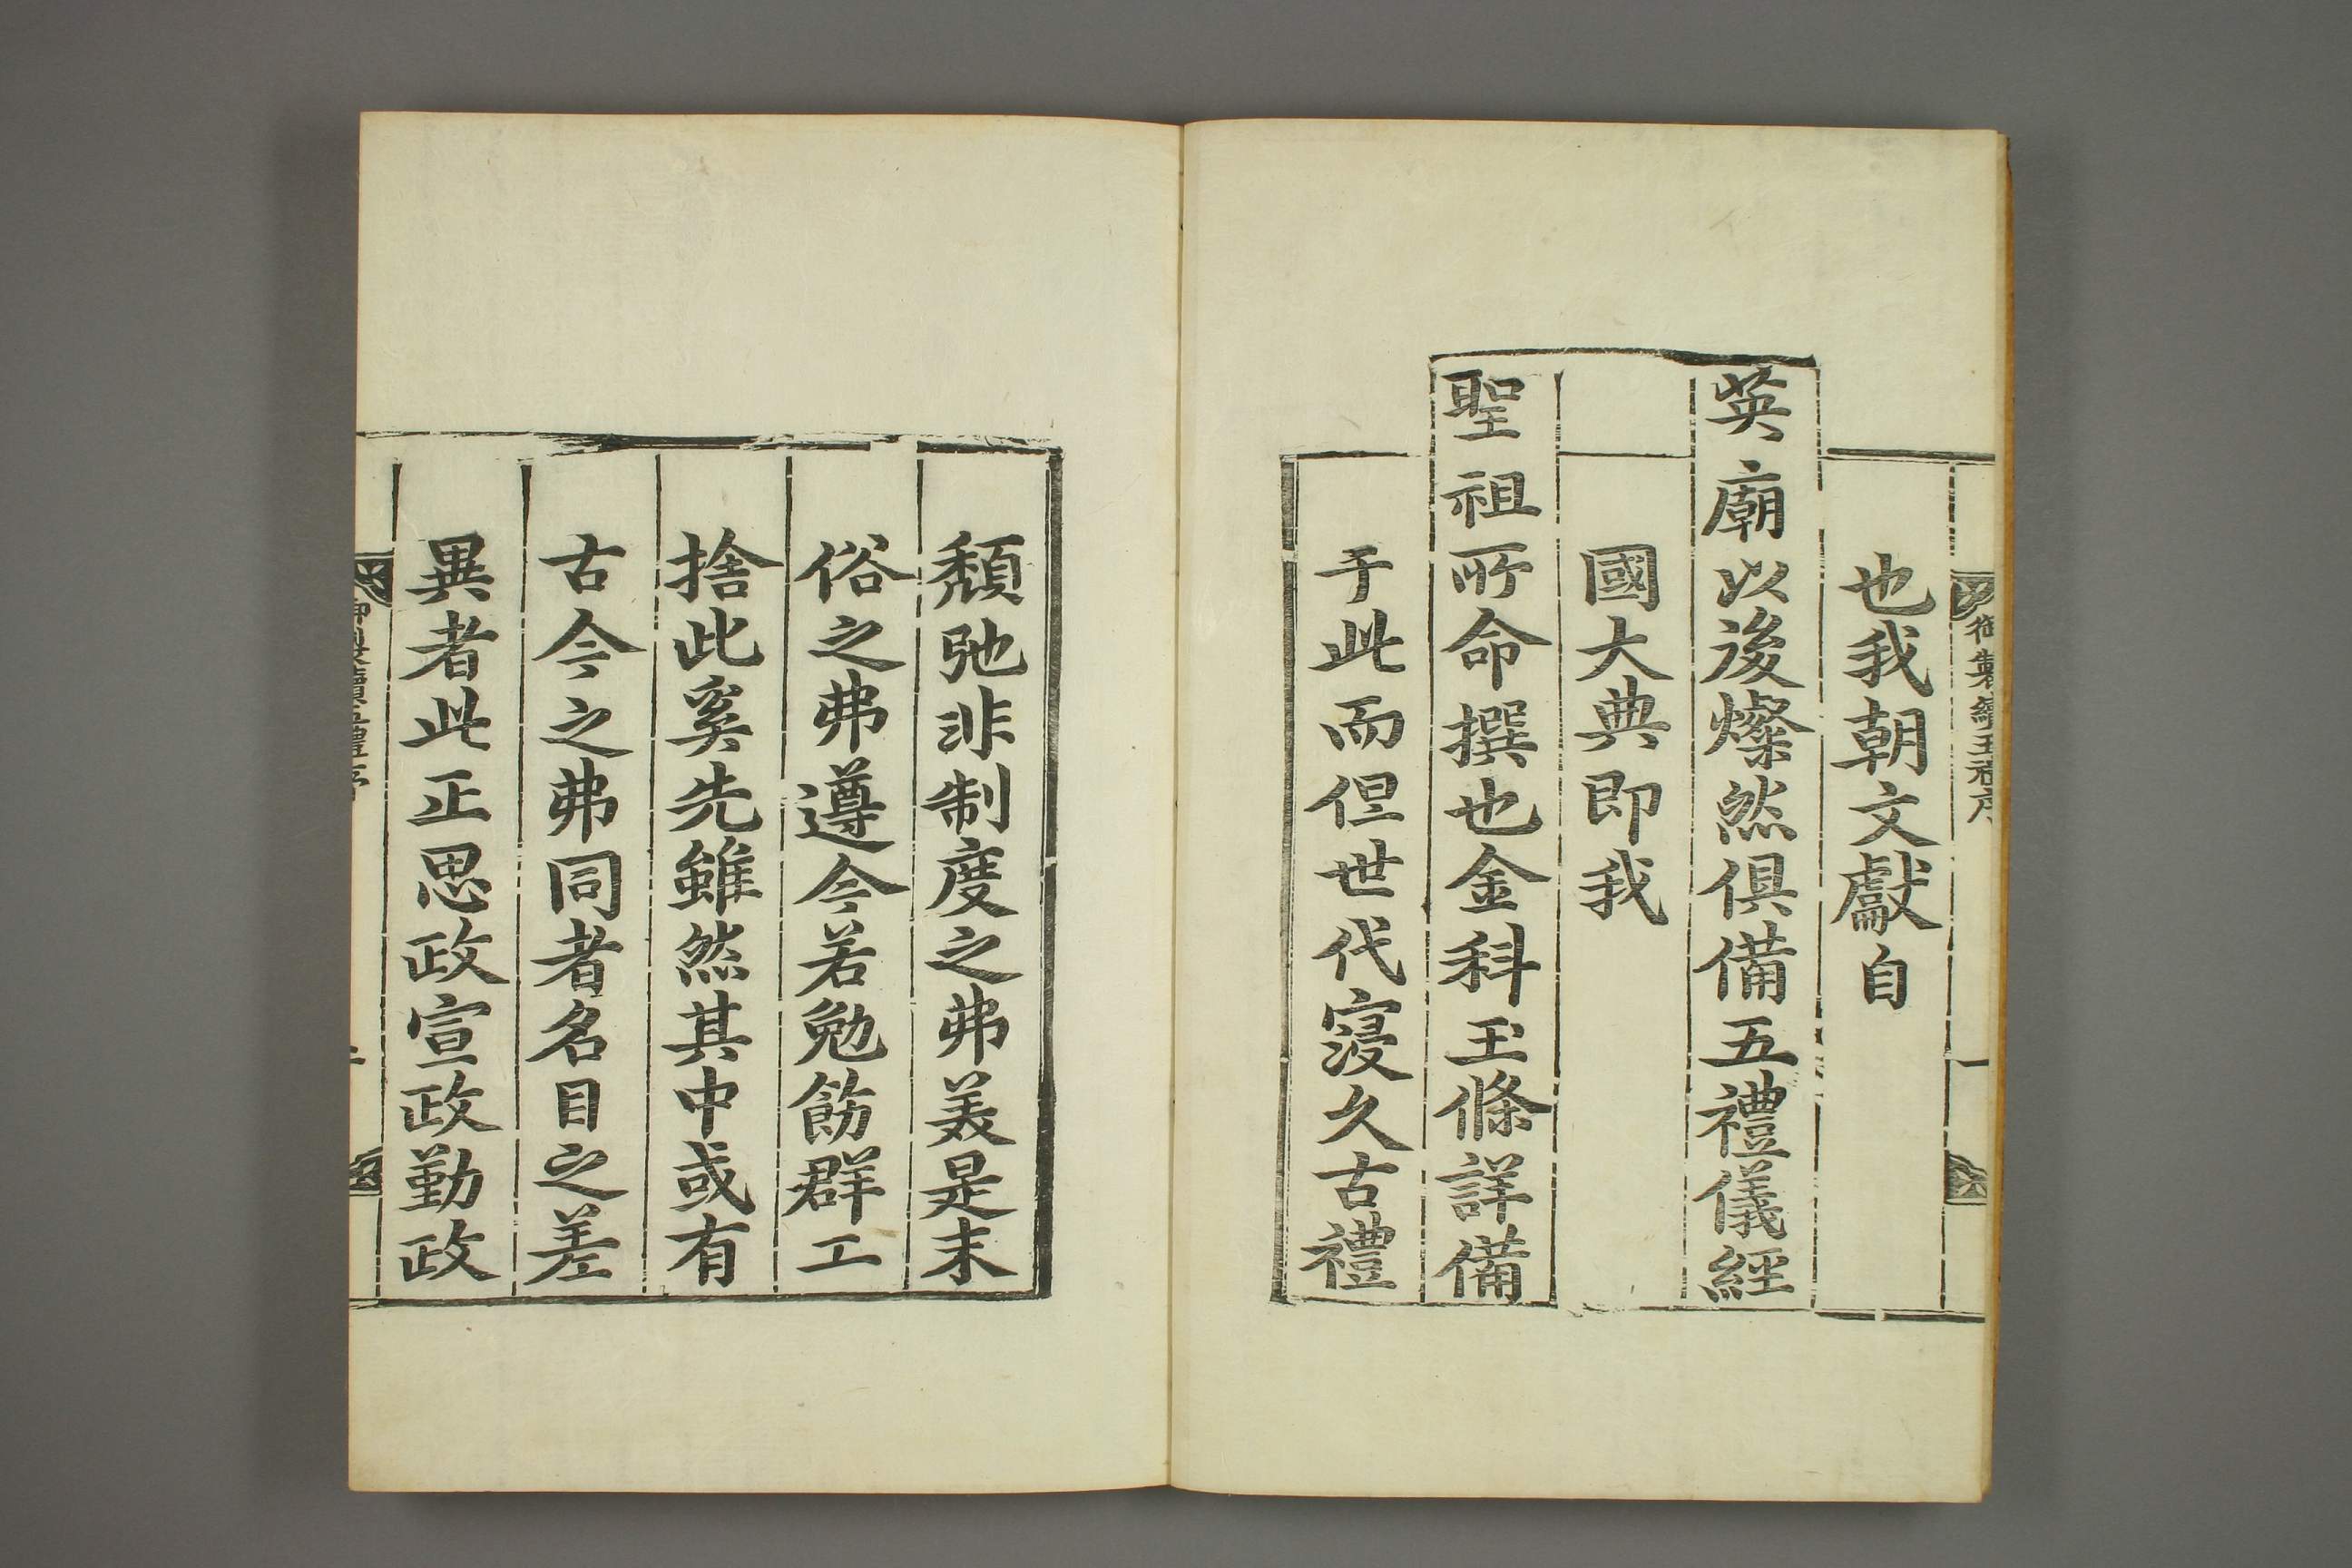 御製續五禮序
一
也我朝文獻自
英廟以後燦然俱備五禮儀經
國大典即我
聖祖所命撰也金科玉條詳備
于此而但世代寖久古禮
頹弛非制度之弗美是末
俗之弗遵今若勉飭群工
捨此奚先雖然其中或有
古今之弗同者名目之差
異者此正思政宣政勤政